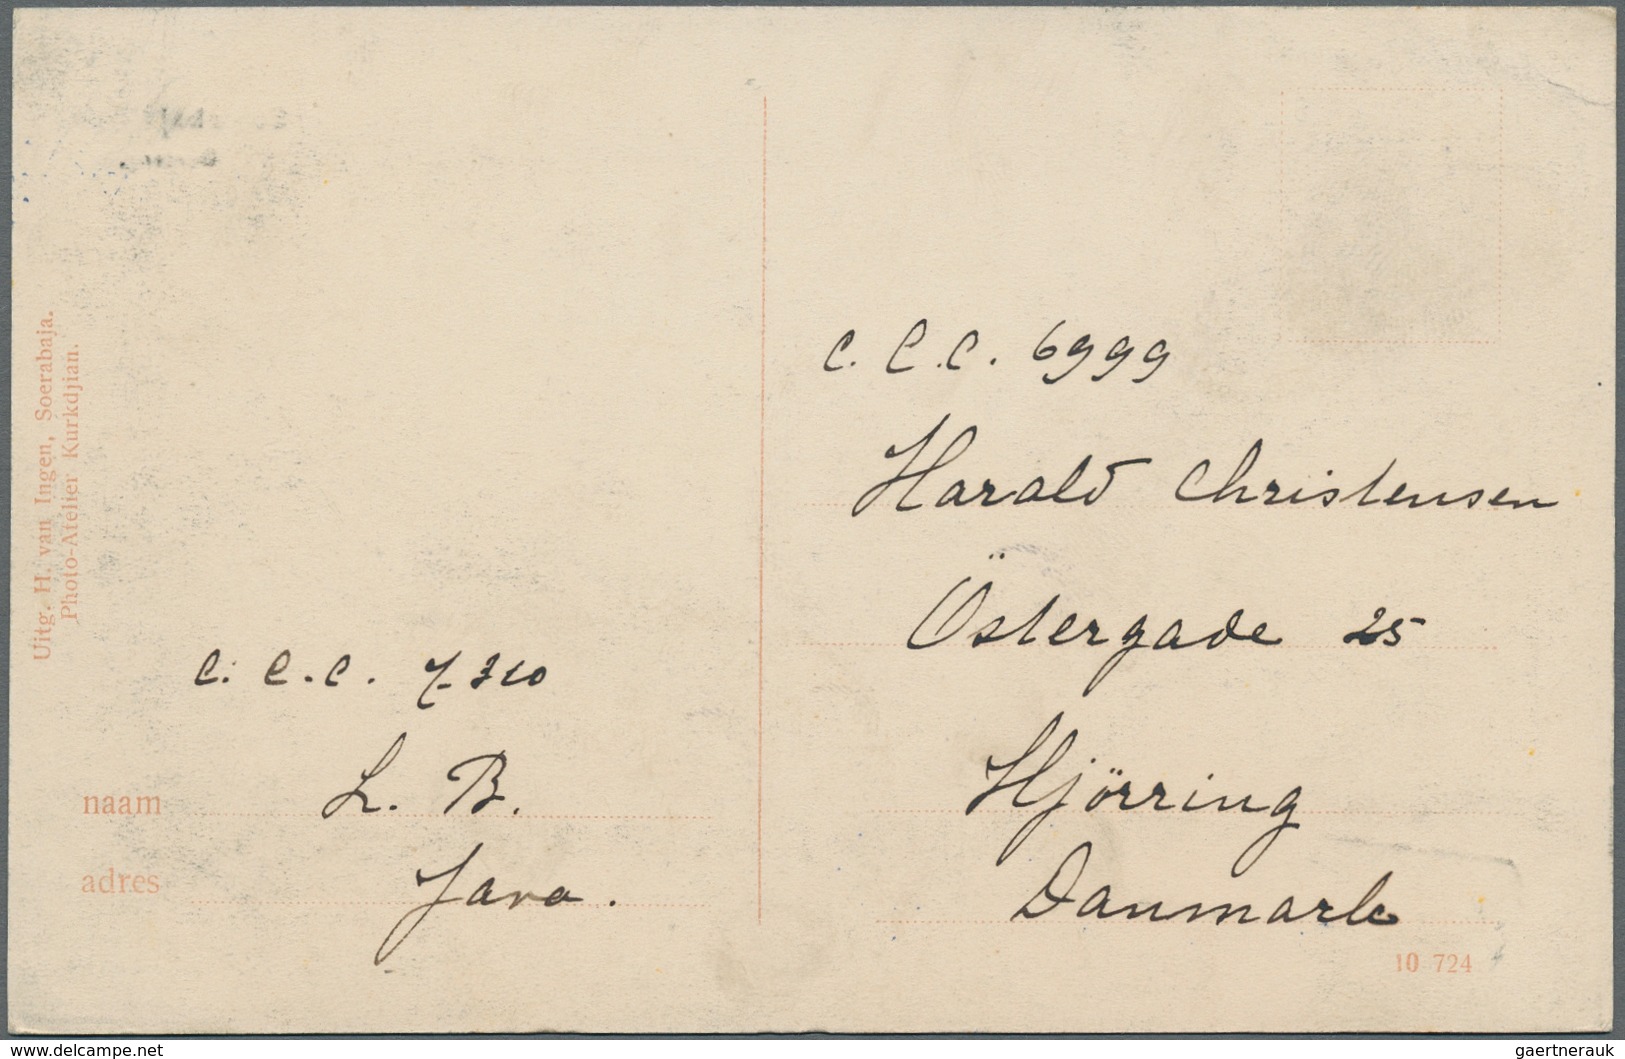 Uitg. H. van Ingen, Soerabaja.
Photo-Atelier Kurkdjian.
C. C. C. 6999
Harald Christensen
Östergade 25
Hjörring
Danmark
C. C. C. 7-310
naam L. B.
adres Java.
10 724
www.delcampe.net
gaertnerauk